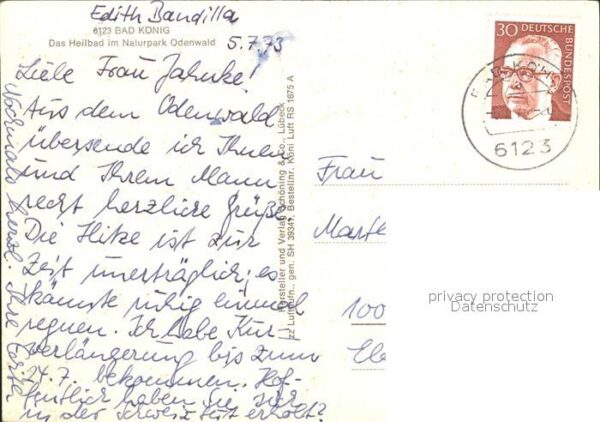 Edith Bandilla
6123 BAD KÖNIG
Das Heilbad im Naturpark Odenwald
5.7.73
Liebe Frau Jahnke!
Aus dem Odenwald
übersende ich Ihnen
und Ihrem Mann
recht herzliche Grüße
Die Hitze ist zur
Zeit unerträglich, es
könnte ruhig einmal
regnen. Ich habe Kur-
verlängerung bis zum
24.7. bekommen. Hof-
fentlich haben sie sich
in der Schweiz gut erholt?
Nochmals herzl. Ihre
Hersteller und Verlag Schöning & Co., Lübeck
gen. SH 39341, Bestellnr. Köni Luft RS 1675 A
30 DEUTSCHE
BUNDESPOST
6123
Frau
Marte
100
privacy protection
Datenschutz